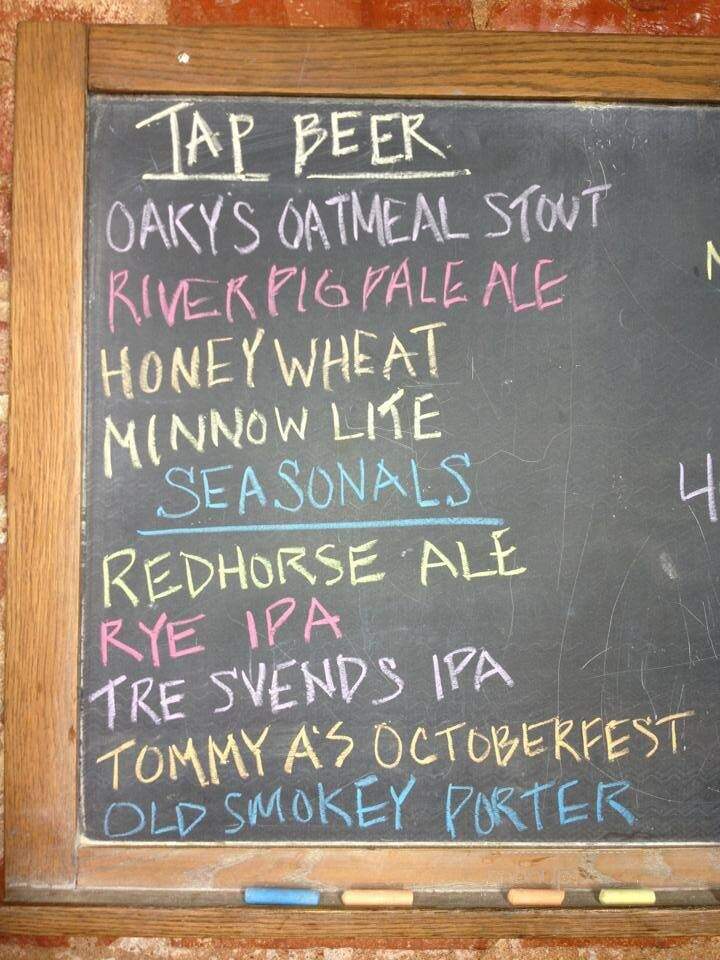 TAP BEER
OAKY'S OATMEAL STOUT
RIVER PIG PALE ALE
HONEY WHEAT
MINNOW LITE
SEASONALS
REDHORSE ALE
RYE IPA
TRE SVENDS IPA
TOMMY A'S OCTOBERFEST
OLD SMOKEY PORTER
4